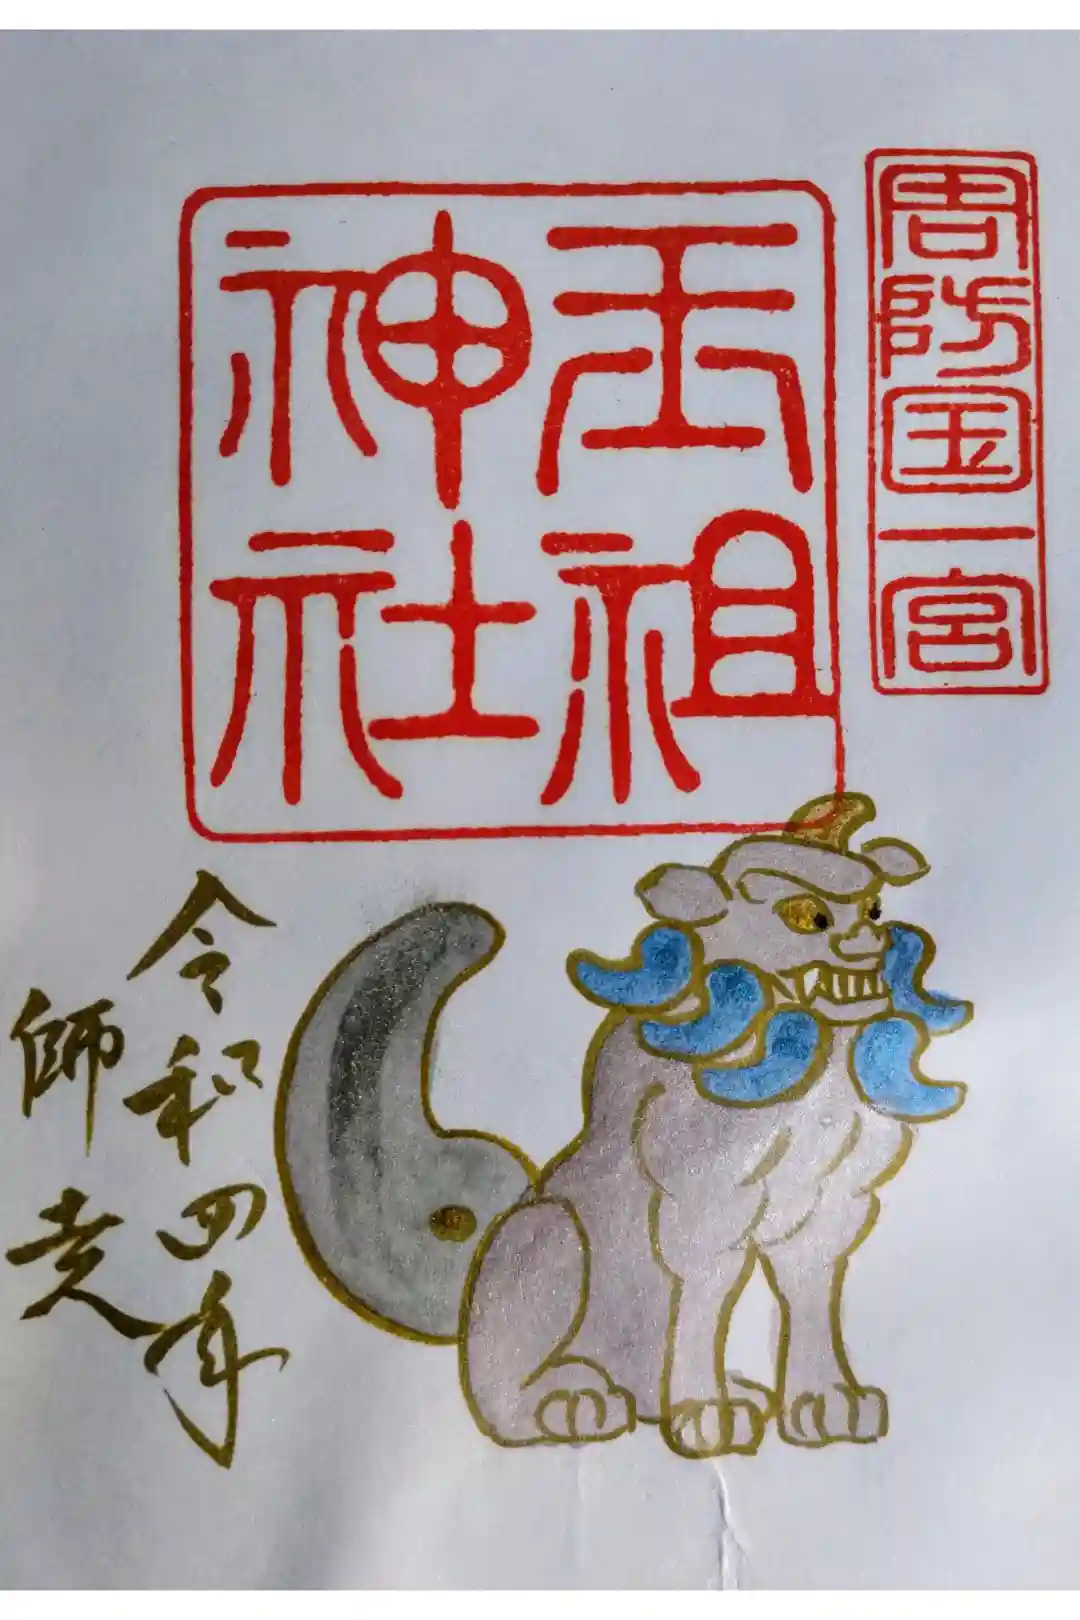 周防国一宮
玉祖
神社
令和四年
師走